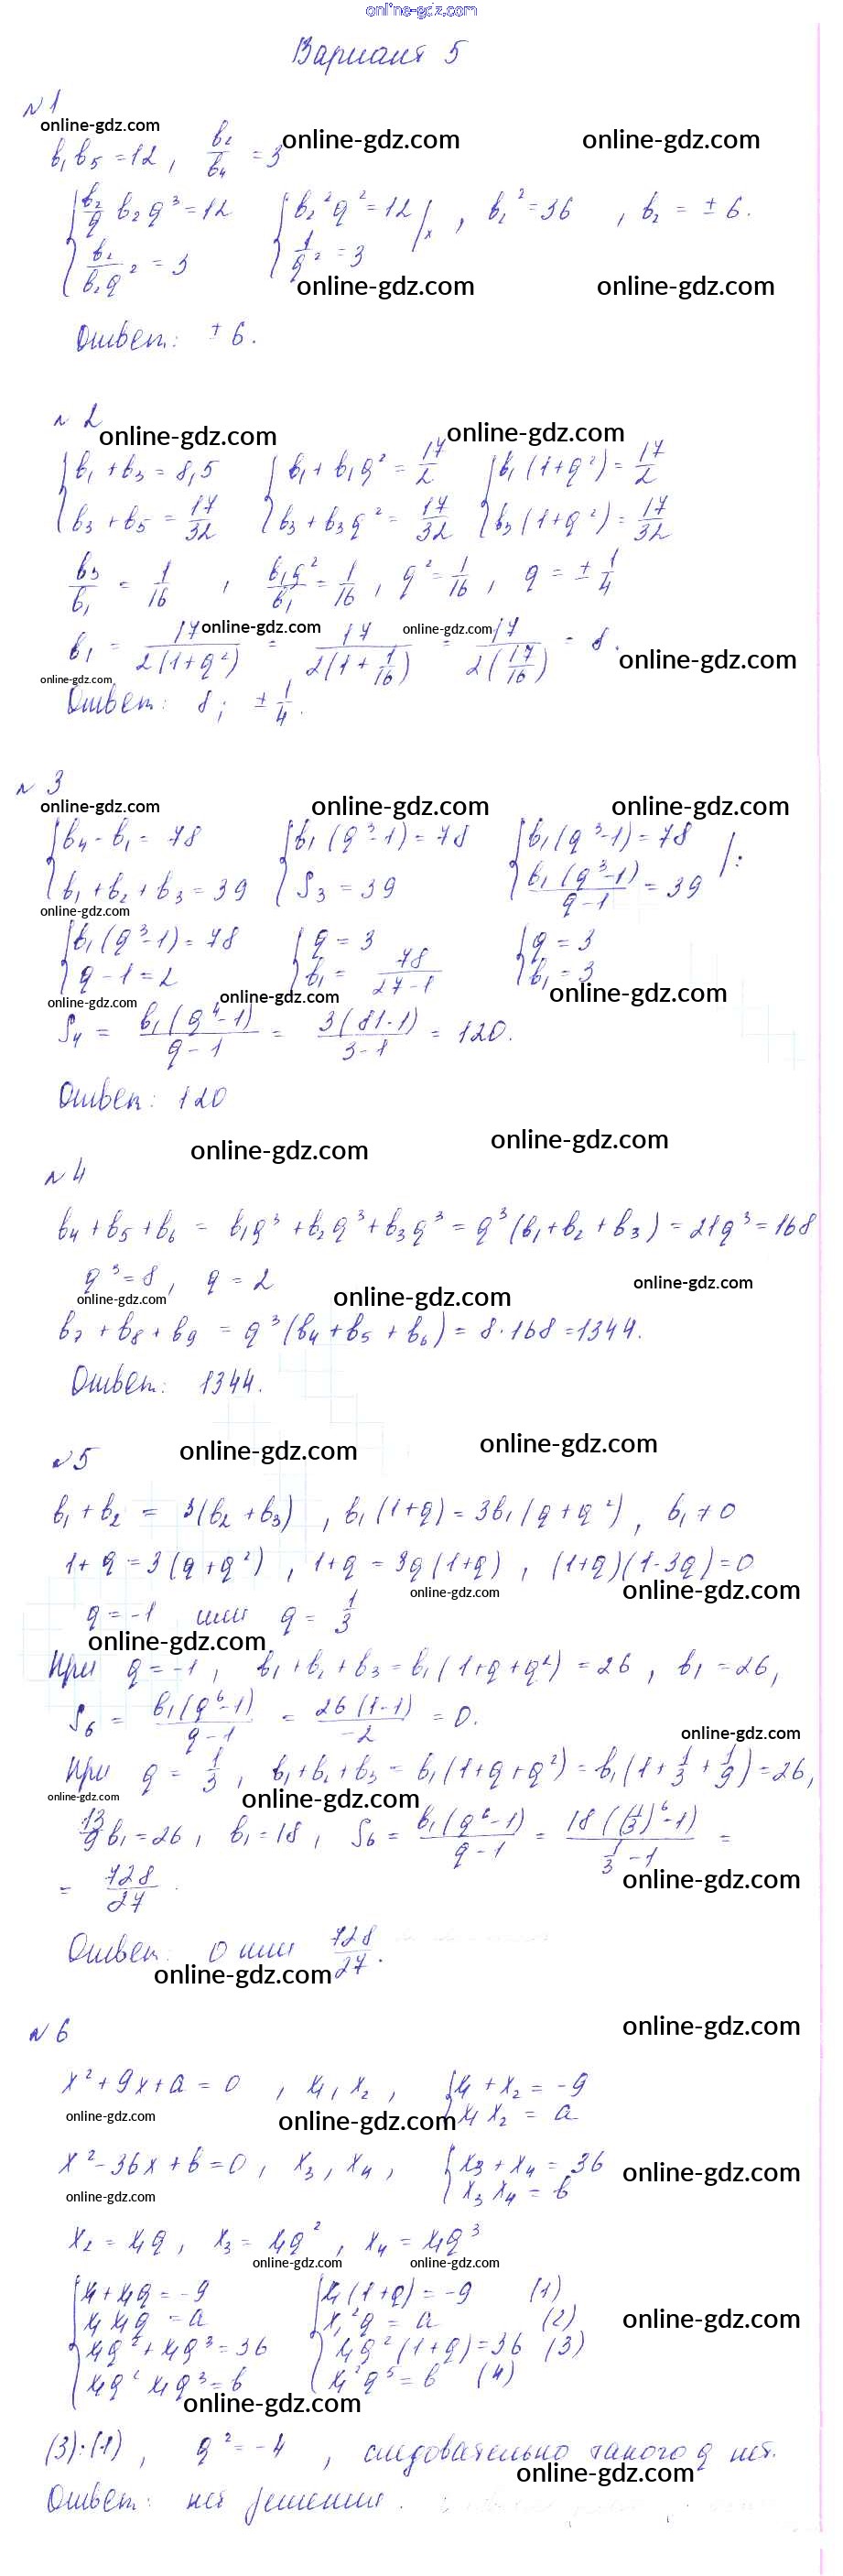 online-gdz.com
Вариант 5
№1
online-gdz.com
online-gdz.com online-gdz.com
b₁b₅ = 12, b₂/b₄ = 3
{ b₂/q b₂q³ = 12 { b₂²q² = 12 |× , b₂² = 36 , b₂ = ± 6.
{ b₂/b₂q² = 3 { 1/q² = 3
online-gdz.com online-gdz.com
Ответ: ± 6.
№ 2
online-gdz.com online-gdz.com
{ b₁ + b₃ = 8,5 { b₁ + b₁q² = 17/2 { b₁(1+q²) = 17/2
{ b₃ + b₅ = 17/32 { b₃ + b₃q² = 17/32 { b₃(1+q²) = 17/32
b₃/b₁ = 1/16 , b₁q²/b₁ = 1/16 , q² = 1/16 , q = ± 1/4
online-gdz.com online-gdz.com
b₁ = 17/2(1+q²) = 17/2(1+1/16) = 17/2(17/16) = 8.
online-gdz.com
online-gdz.com
Ответ: 8; ± 1/4.
№ 3
online-gdz.com online-gdz.com online-gdz.com
{ b₄ - b₁ = 78 { b₁(q³-1) = 78 { b₁(q³-1) = 78 |:
{ b₁ + b₂ + b₃ = 39 { S₃ = 39 { b₁(q³-1)/q-1 = 39
online-gdz.com
{ b₁(q³-1) = 78 { q = 3 { q = 3
{ q - 1 = 2 { b₁ = 78/27-1 { b₁ = 3
online-gdz.com online-gdz.com online-gdz.com
S₄ = b₁(q⁴-1)/q-1 = 3(81-1)/3-1 = 120.
Ответ: 120
online-gdz.com online-gdz.com
№4
b₄ + b₅ + b₆ = b₁q³ + b₂q³ + b₃q³ = q³(b₁ + b₂ + b₃) = 21q³ = 168
q³ = 8, q = 2
online-gdz.com
online-gdz.com online-gdz.com
b₇ + b₈ + b₉ = q³(b₄ + b₅ + b₆) = 8·168 = 1344.
Ответ: 1344.
№5
online-gdz.com online-gdz.com
b₁ + b₂ = 3(b₂ + b₃) , b₁(1+q) = 3b₁(q+q²), b₁ ≠ 0
1+q = 3(q+q²) , 1+q = 3q(1+q) , (1+q)(1-3q) = 0
online-gdz.com online-gdz.com
q = -1 или q = 1/3
online-gdz.com
При q = -1, b₁ + b₂ + b₃ = b₁(1+q+q²) = 26, b₁ = 26,
S₆ = b₁(q⁶-1)/q-1 = 26(1-1)/-2 = 0.
online-gdz.com
При q = 1/3, b₁ + b₂ + b₃ = b₁(1+q+q²) = b₁(1 + 1/3 + 1/9) = 26,
online-gdz.com online-gdz.com
13/9 b₁ = 26, b₁ = 18, S₆ = b₁(q⁶-1)/q-1 = 18((1/3)⁶-1)/1/3-1 =
online-gdz.com
= 728/27.
Ответ: 0 или 728/27.
online-gdz.com
online-gdz.com
№6
x² + 9x + a = 0 , x₁, x₂, { x₁ + x₂ = -9
{ x₁x₂ = a
online-gdz.com online-gdz.com
x² - 36x + b = 0, x₃, x₄, { x₃ + x₄ = 36
{ x₃x₄ = b
online-gdz.com
online-gdz.com
x₂ = x₁q, x₃ = x₁q², x₄ = x₁q³
online-gdz.com online-gdz.com
{ x₁ + x₁q = -9 { x₁(1+q) = -9 (1)
{ x₁x₁q = a { x₁²q = a (2)
online-gdz.com
{ x₁q² + x₁q³ = 36 { x₁q²(1+q) = 36 (3)
{ x₁q² x₁q³ = b { x₁²q⁵ = b (4)
online-gdz.com
(3):(1), q² = -4 , следовательно такого q нет.
online-gdz.com
Ответ: нет решений.